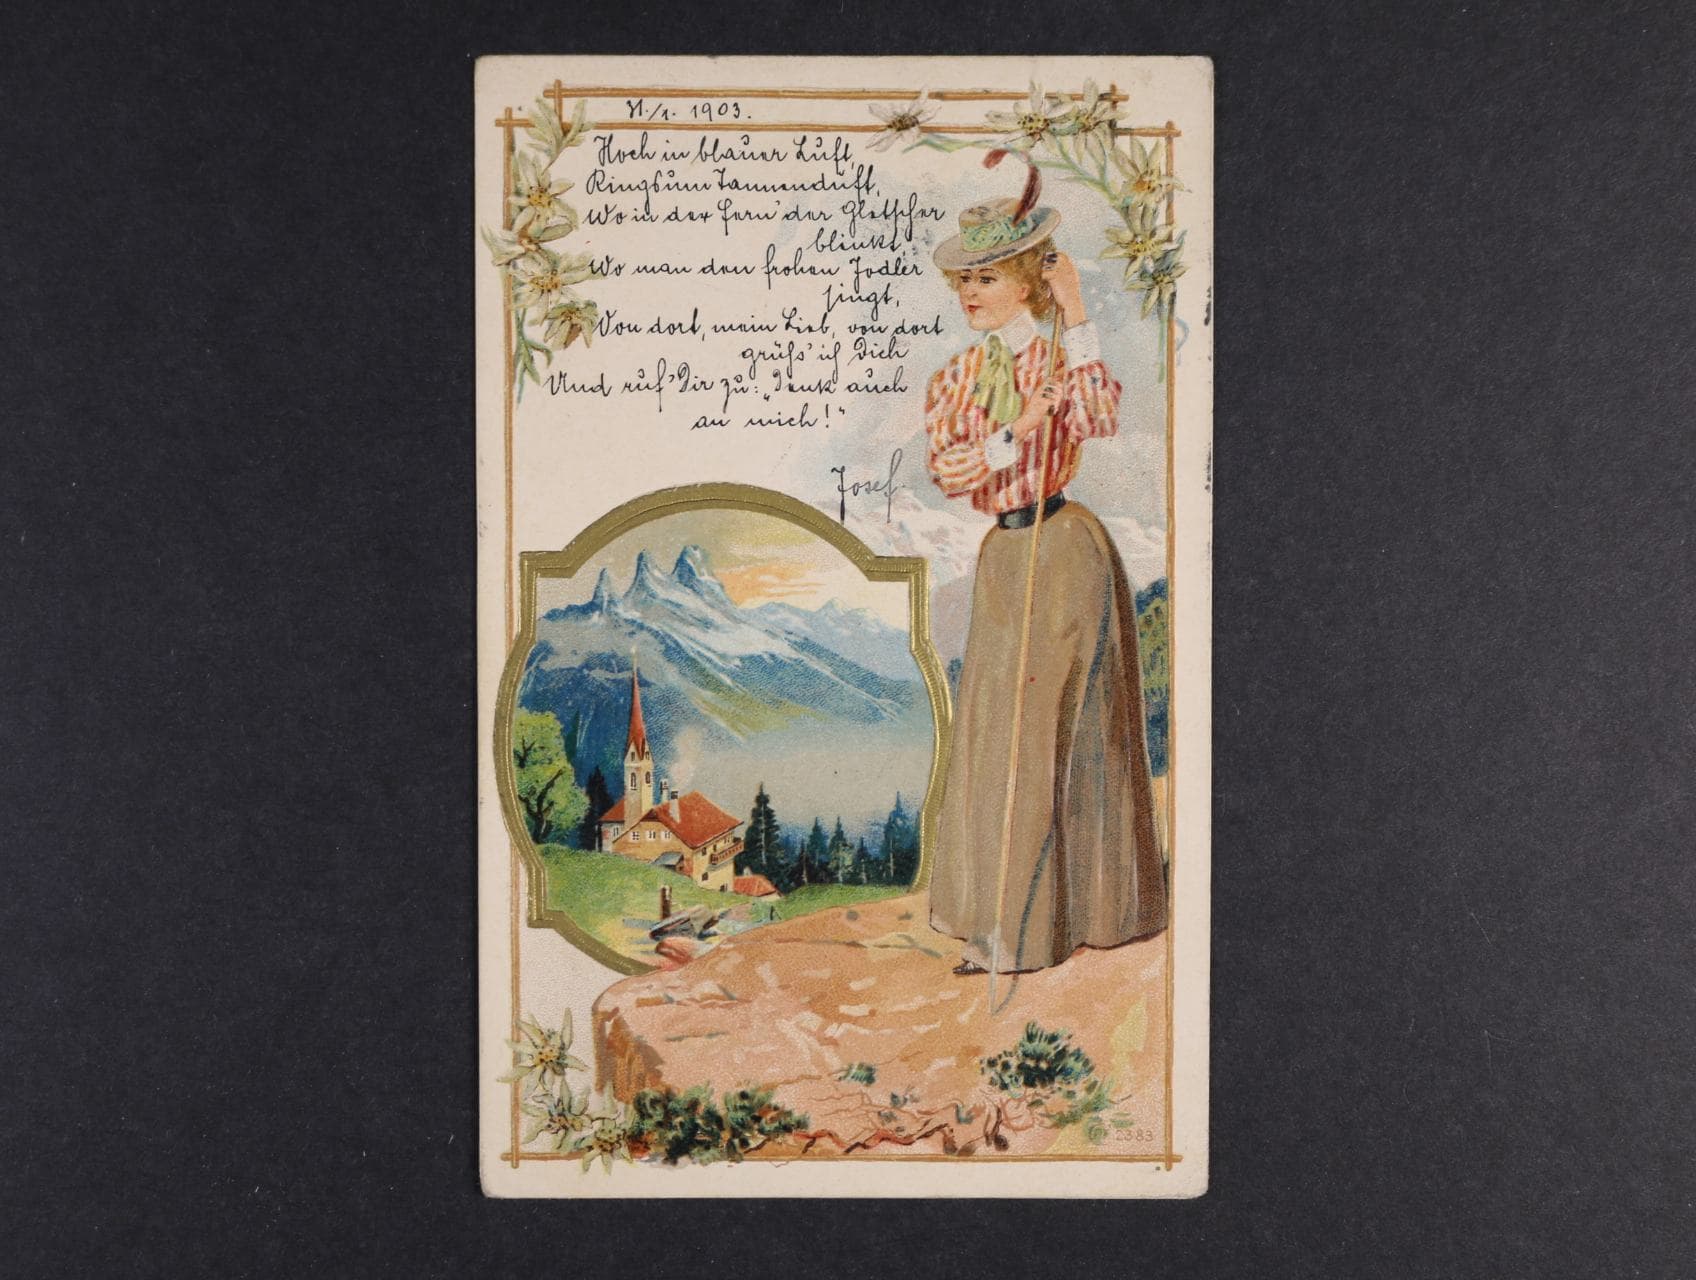 31./1. 1903.
Hoch in blauer Luft,
Ringsum Tannenduft,
Wo in der Fern' der Gletscher
blinkt,
Wo man den frohen Jodler
singt,
Von dort, mein Lieb, von dort
grüß' ich Dich
Und ruf' Dir zu: „Denk auch
an mich!“
Josef.
2383